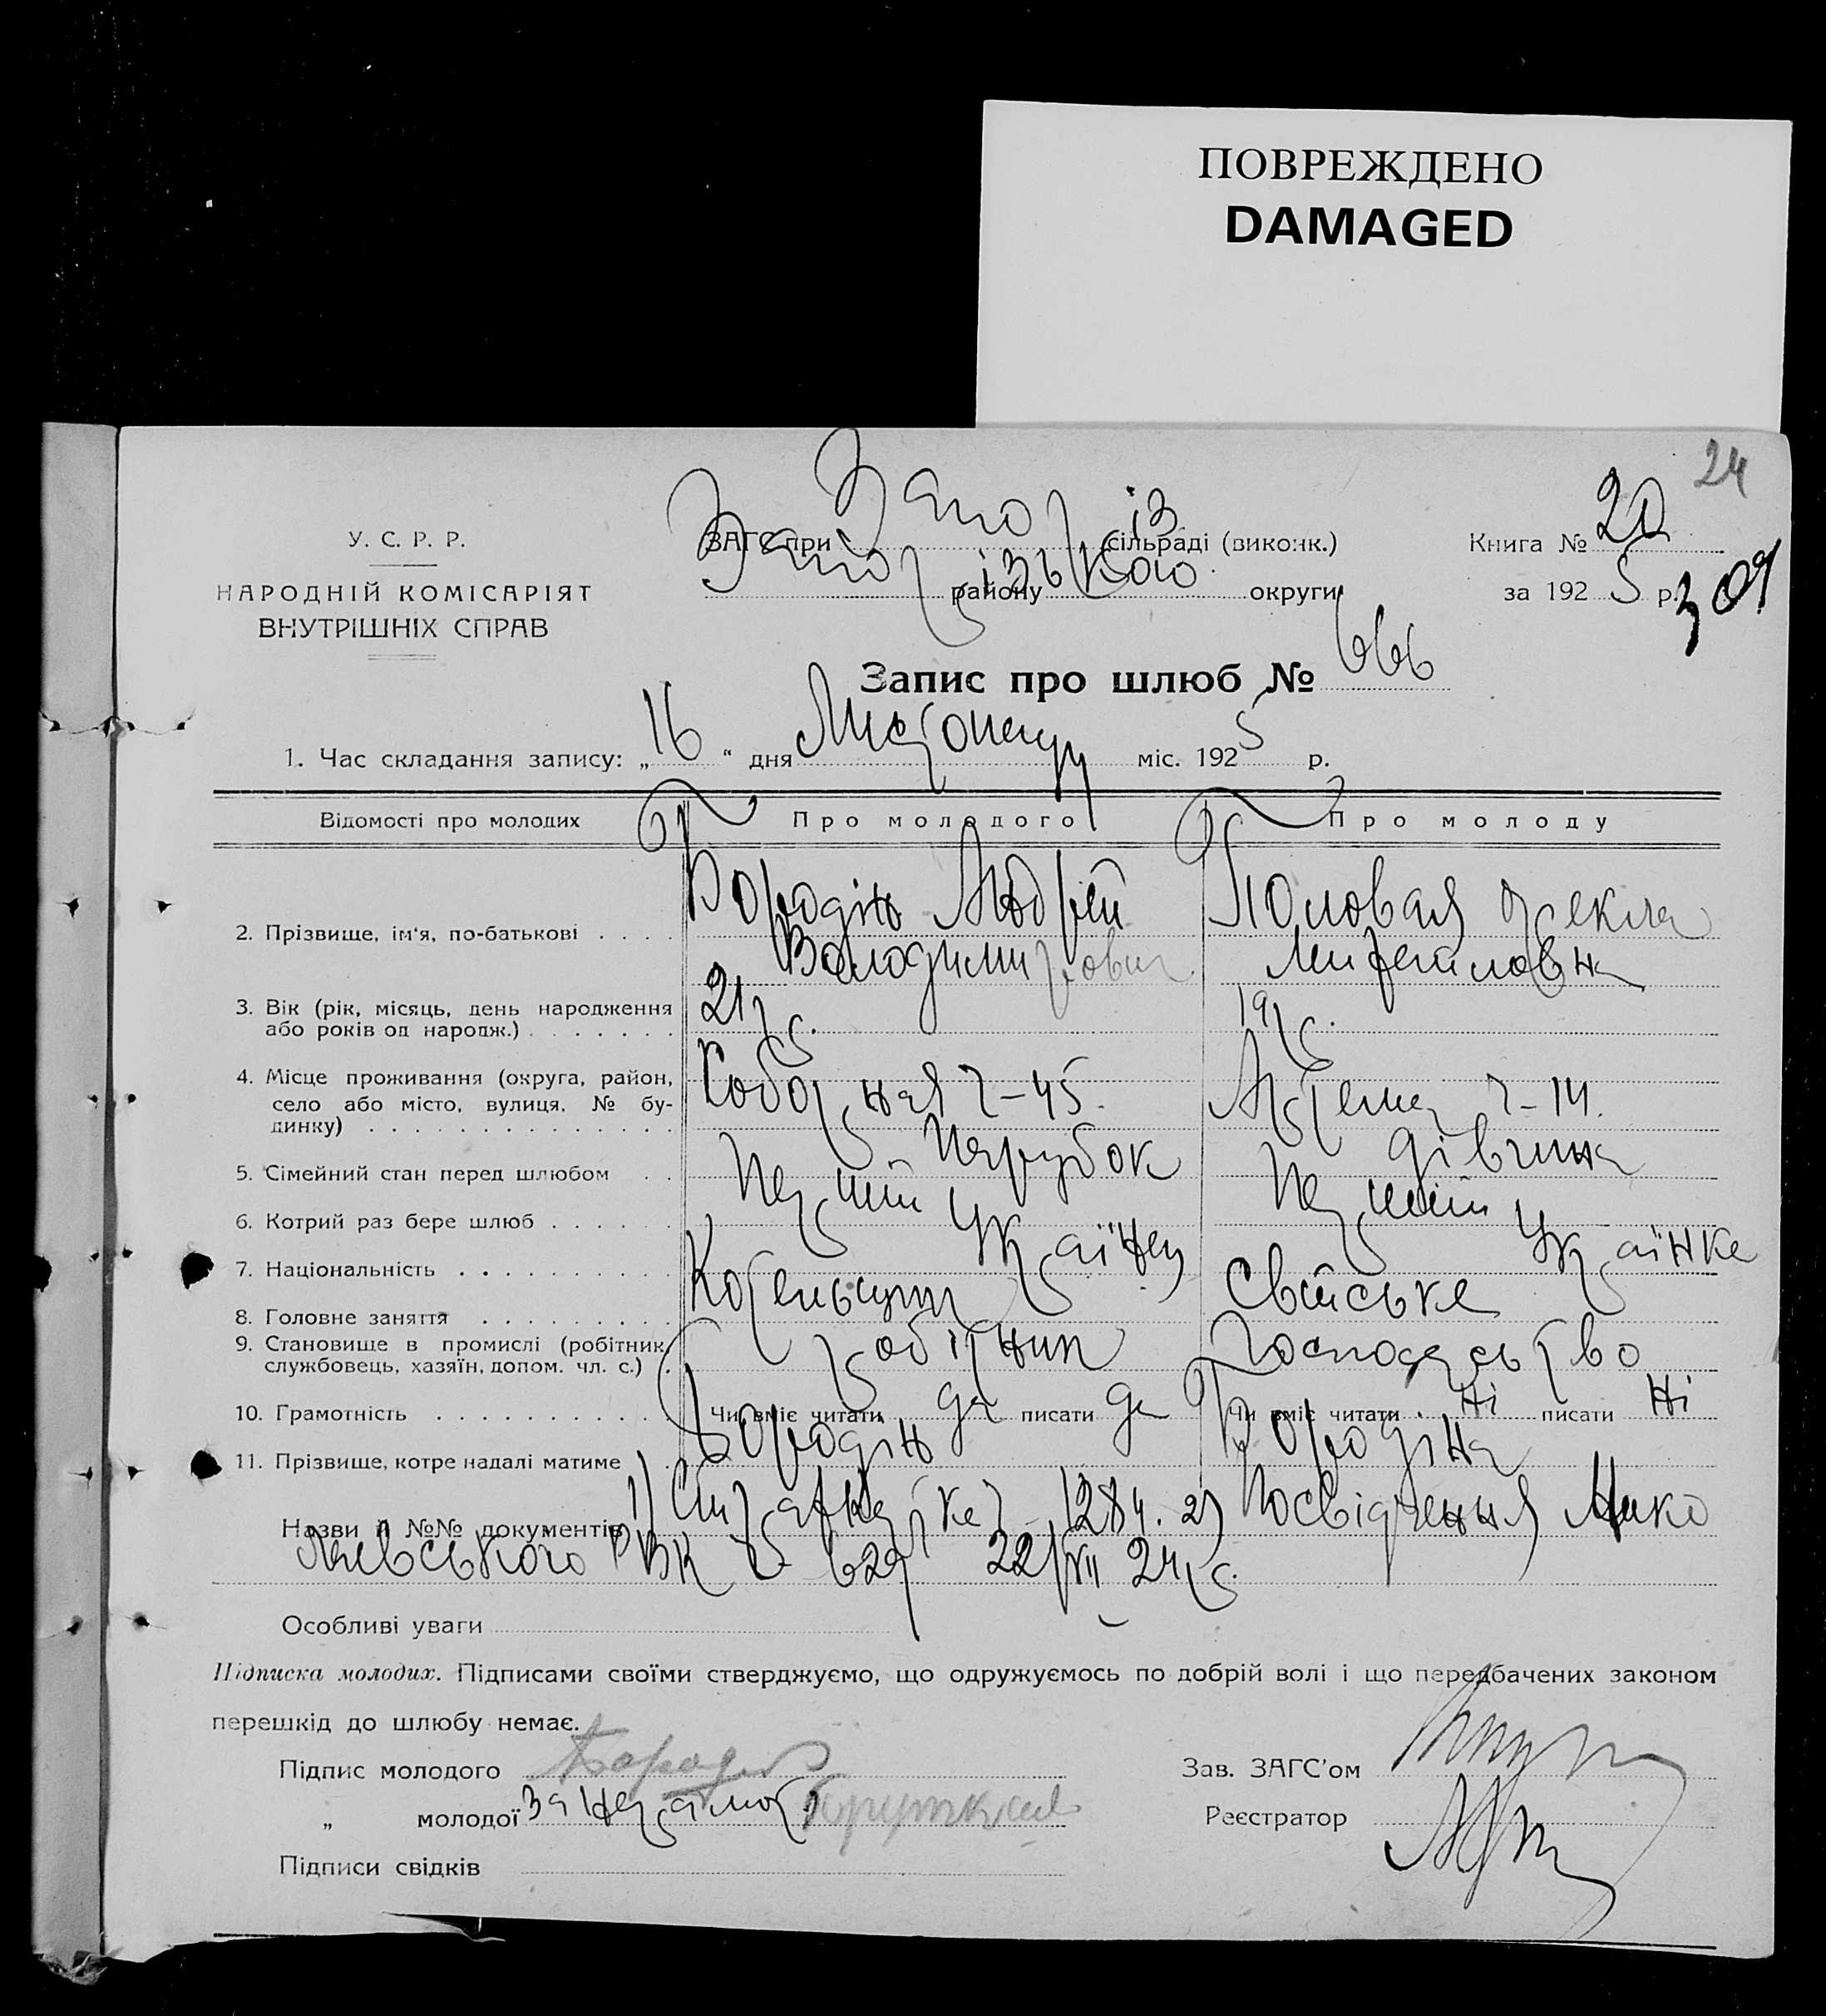 ПОВРЕЖДЕНО
DAMAGED
24
У. С. Р. Р.
НАРОДНІЙ КОМІСАРІЯТ
ВНУТРІШНІХ СПРАВ
ЗАГС при Запоріз сільраді (виконк.)
району Запорізького округи
Книга № 20
за 1925 р. 309
Запис про шлюб № 666
1. Час складання запису: „16“ дня Листопаду міс. 1925 р.
Відомості про молодих Про молодого Про молоду
2. Прізвище, ім'я, по-батькові . . . . Бородін Андрій Половая Текла
Володимирович Михайловна
3. Вік (рік, місяць, день народження 21 р. 19 р.
або років од народж.) . . . . . . .
4. Місце проживання (округа, район, Соборная 45. Артема 14.
село або місто, вулиця, № бу-
динку) . . . . . . . . . . . . . .
5. Сімейний стан перед шлюбом . . Парубок дівчина
6. Котрий раз бере шлюб . . . . . . Перший Перший
7. Національність . . . . . . . . . . Українец Українка
8. Головне заняття . . . . . . . . . Котельщик Свійське
9. Становище в промислі (робітник, робітник Господарство
службовець, хазяїн, допом. чл. с.) .
10. Грамотність . . . . . . . . . . . Чи вміє читати да писати да Чи вміє читати ні писати ні
11. Прізвище, котре надалі матиме . Бородін Бородіна
Назви й №№ документів 1) 1284. 2) Посвідчення Нико
лаевського РВК 629 22/VII 24 р.
Особливі уваги
Підписка молодих. Підписами своїми стверджуємо, що одружуємось по добрій волі і що передбачених законом
перешкід до шлюбу немає.
Підпис молодого Бородін
Зав. ЗАГС'ом
„ молодої За неграмот
Реєстратор
Підписи свідків